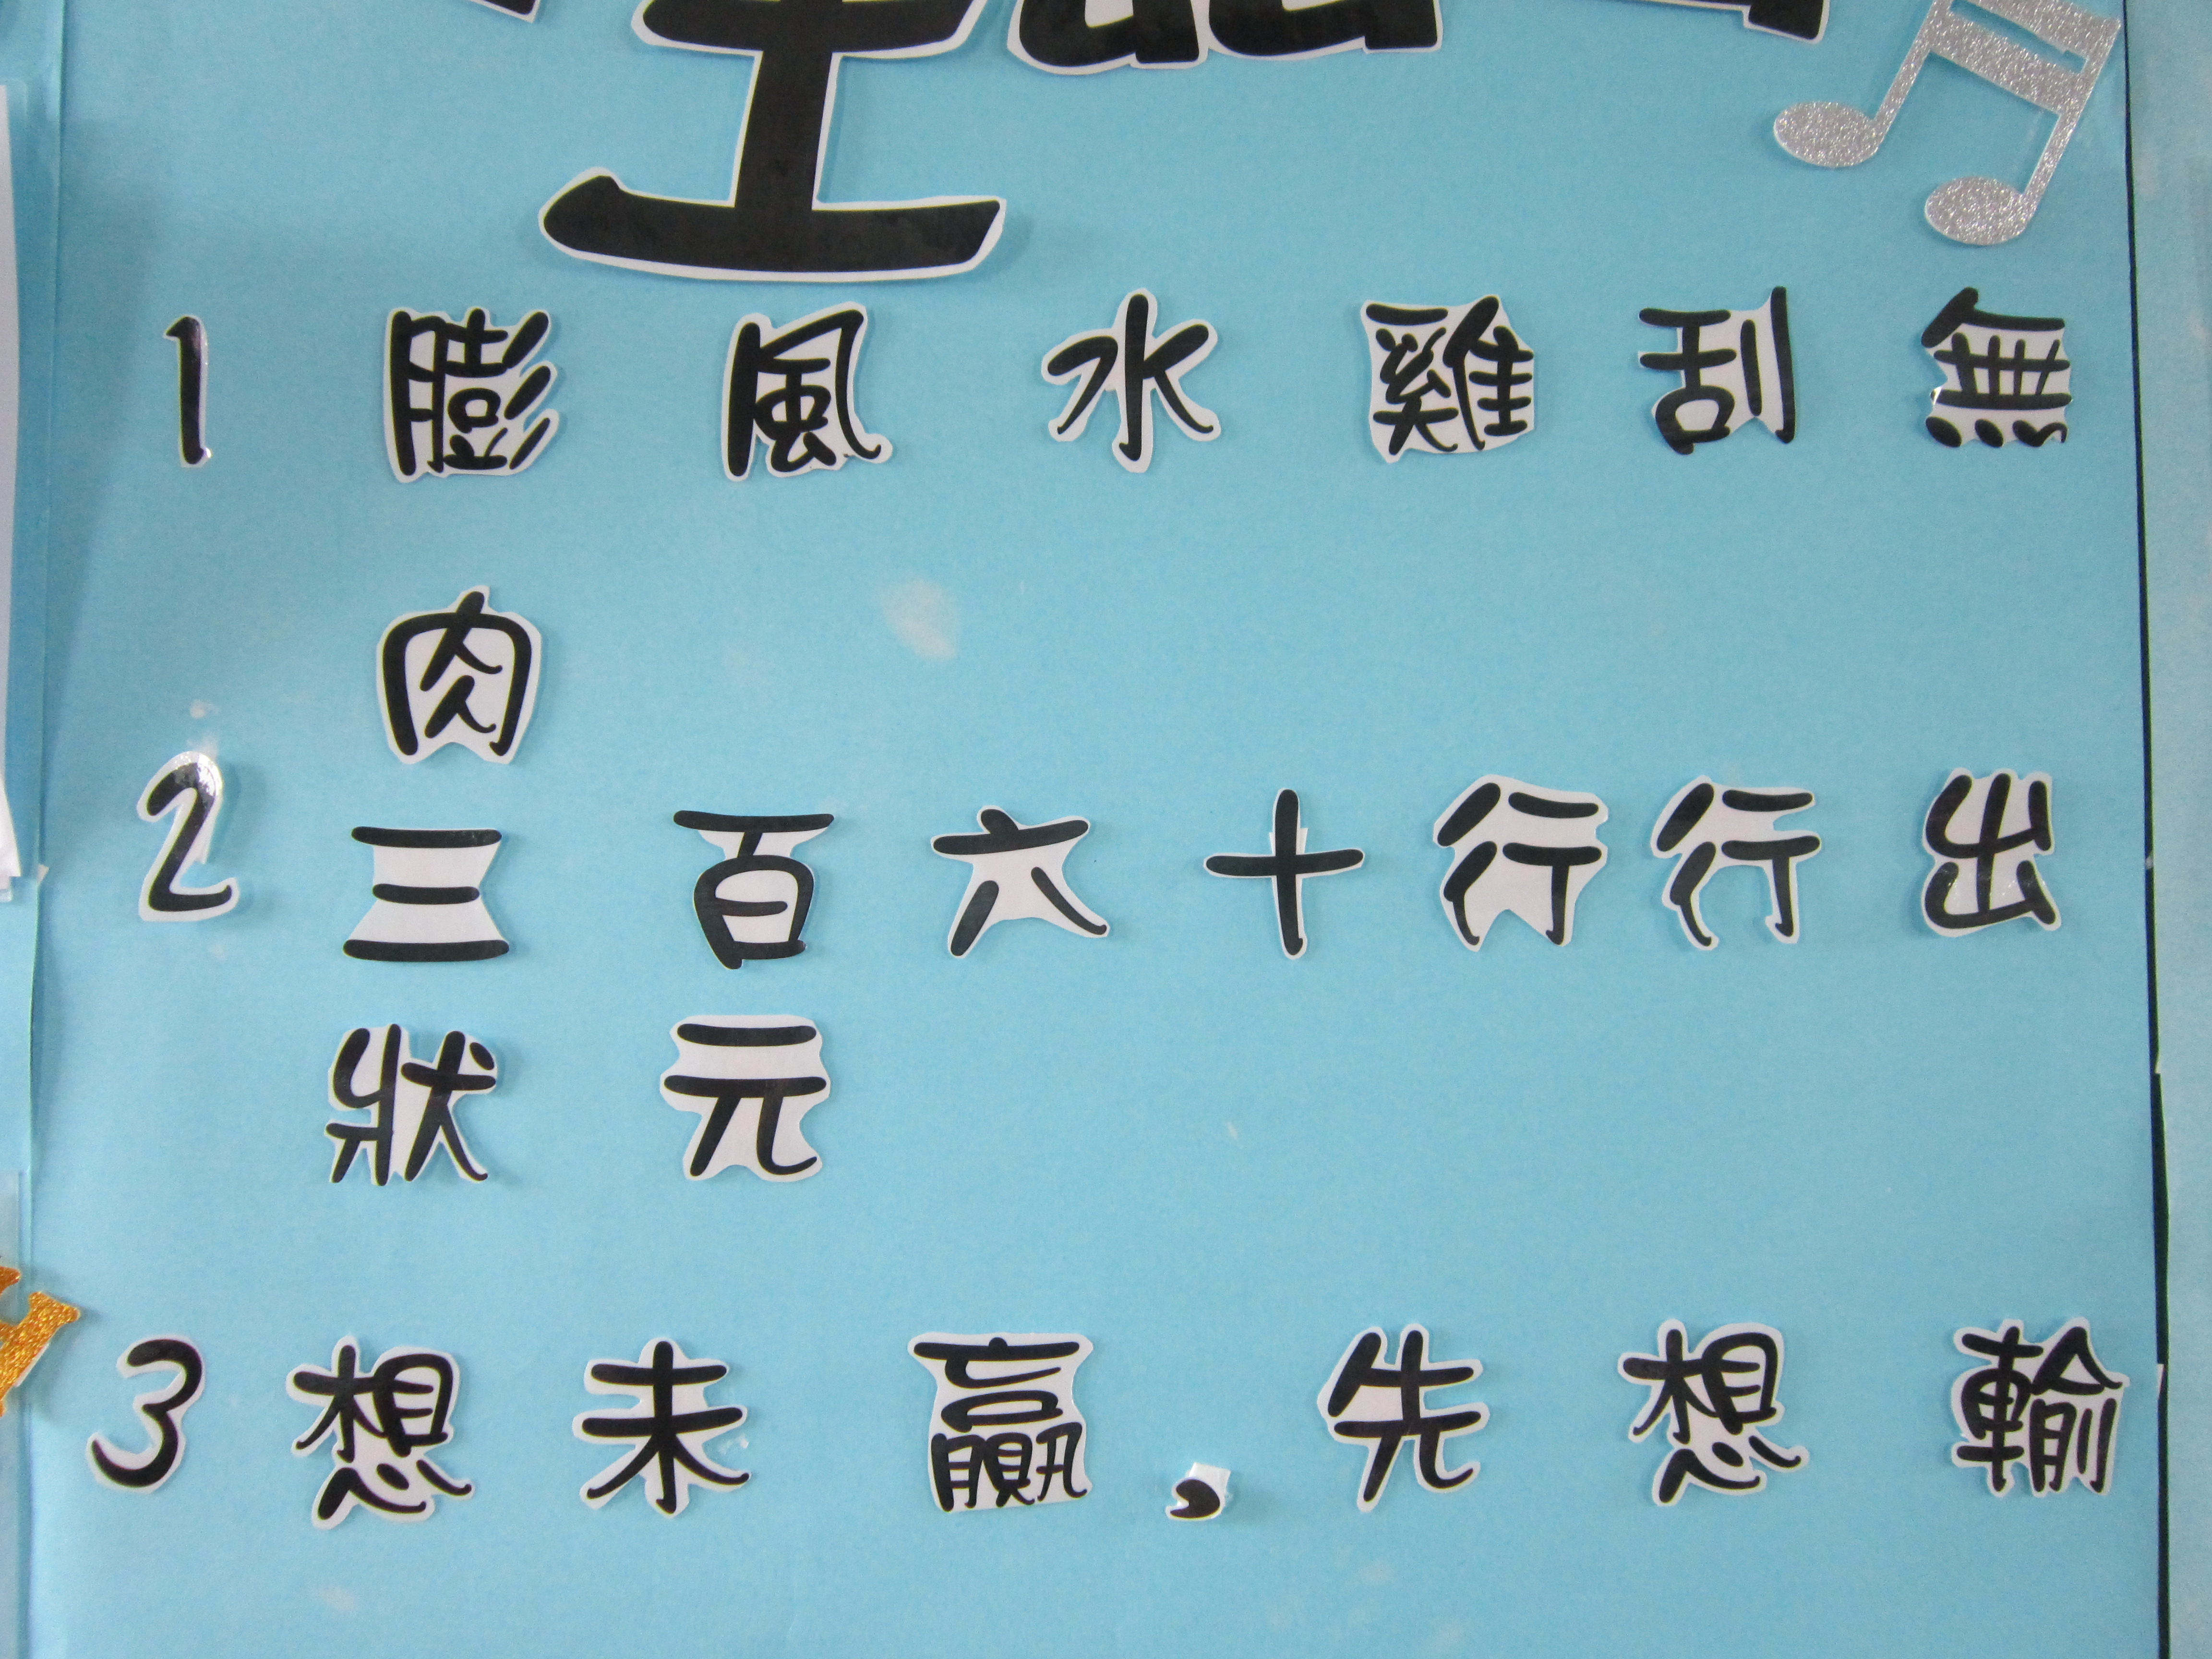 1 膨風水雞刮無
肉
2 三百六十行行出
狀元
3 想未贏,先想輸